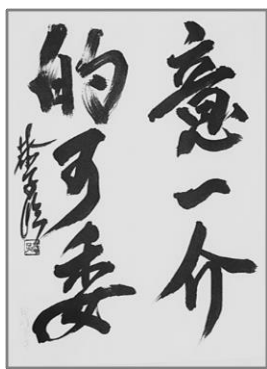 意一介
的可委